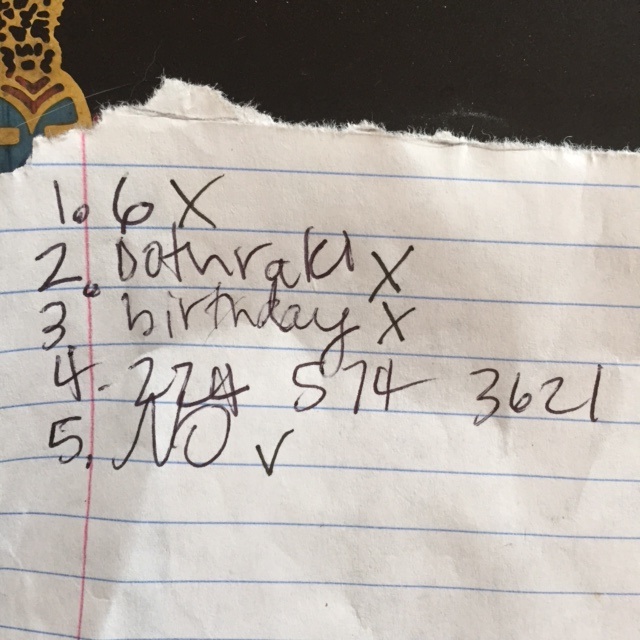 1. 6 X
2. Dothraki X
3. birthday X
4. 224 574 3621
5. NO v